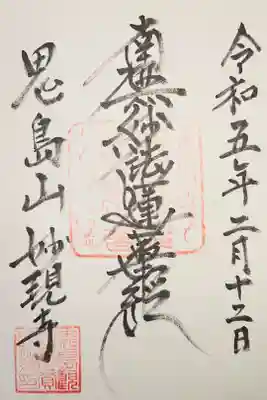 令和五年二月十二日
南無妙法蓮華経
思島山妙現寺